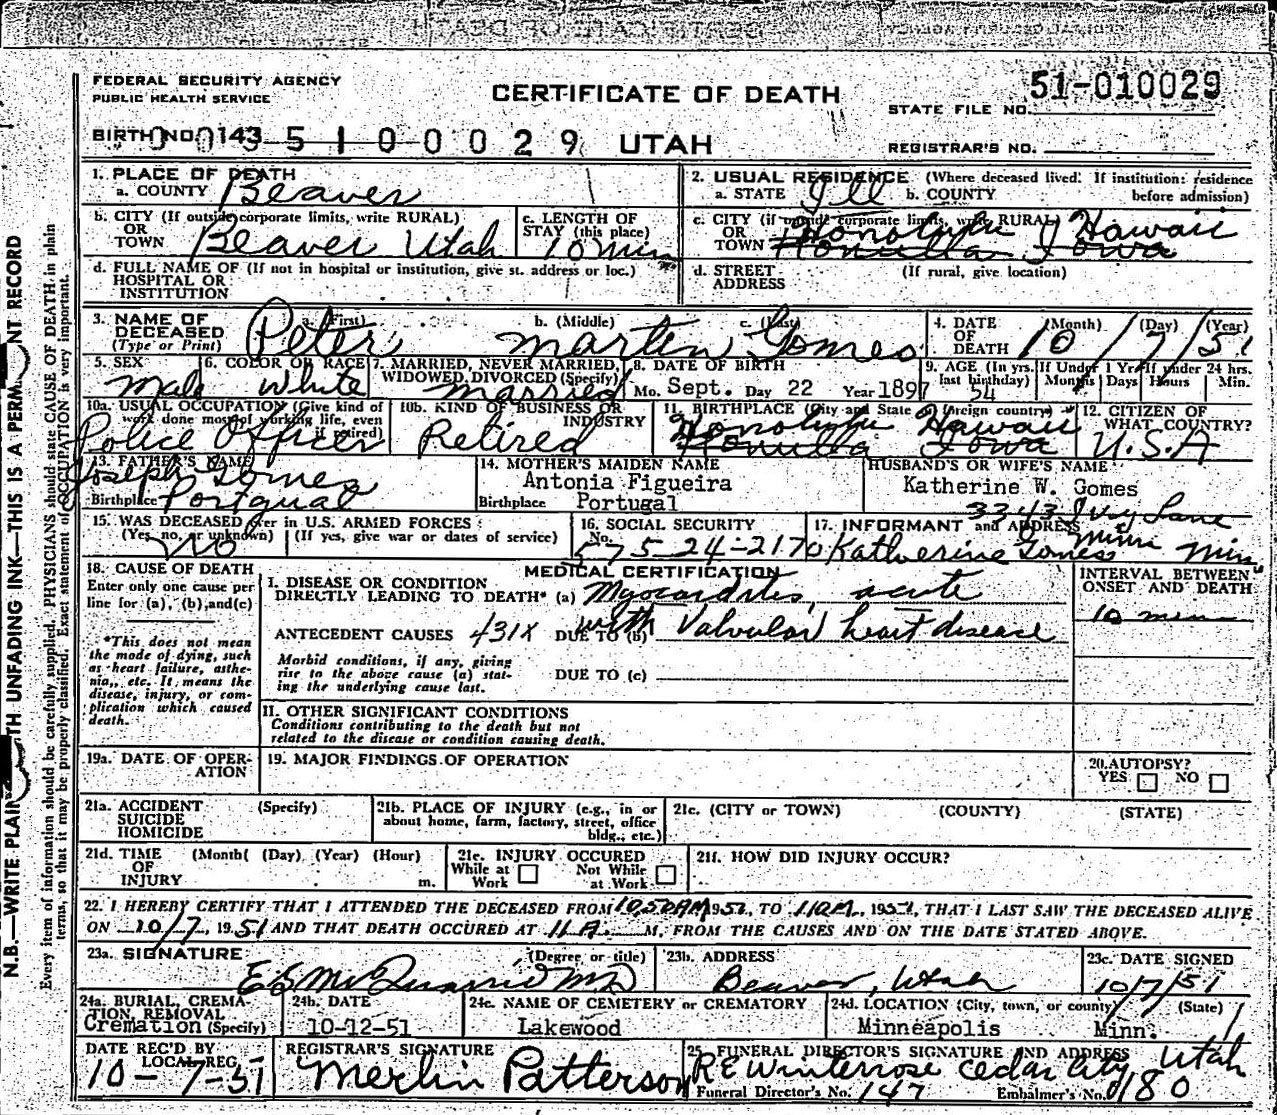 FEDERAL SECURITY AGENCY
PUBLIC HEALTH SERVICE
CERTIFICATE OF DEATH
STATE FILE NO. 51-010029
BIRTH NO. 143
5 1 0 0 0 2 9
UTAH
REGISTRAR'S NO.
1. PLACE OF DEATH
a. COUNTY Beaver
2. USUAL RESIDENCE (Where deceased lived. If institution: residence before admission)
a. STATE Ill b. COUNTY
b. CITY (If outside corporate limits, write RURAL)
OR
TOWN Beaver Utah
c. LENGTH OF
STAY (this place)
10 min
c. CITY (if outside corporate limits, write RURAL)
OR
TOWN
Honolulu Hawaii
Honulla Iowa
d. FULL NAME OF (If not in hospital or institution, give st. address or loc.)
HOSPITAL OR
INSTITUTION
d. STREET
ADDRESS
(If rural, give location)
3. NAME OF
DECEASED
(Type or Print)
a. (First) b. (Middle) c. (Last)
Peter Martin Gomes
4. DATE
OF
DEATH
(Month) (Day) (Year)
10/7/51
5. SEX
Male
6. COLOR OR RACE
White
7. MARRIED, NEVER MARRIED,
WIDOWED, DIVORCED (Specify)
Married
8. DATE OF BIRTH
Mo. Sept. Day 22 Year 1897
9. AGE (In yrs. last birthday)
54
If Under 1 Yr.
Months Days
If under 24 hrs.
Hours Min.
10a. USUAL OCCUPATION (Give kind of
work done most of working life, even
if retired)
Police Officer
10b. KIND OF BUSINESS OR
INDUSTRY
Retired
11. BIRTHPLACE (City and State or foreign country)
Honolulu Hawaii
Honulla Iowa
12. CITIZEN OF
WHAT COUNTRY?
U.S.A
13. FATHER'S NAME
Joseph Gomes
Birthplace Portgual
14. MOTHER'S MAIDEN NAME
Antonia Figueira
Birthplace Portugal
HUSBAND'S OR WIFE'S NAME
Katherine W. Gomes
15. WAS DECEASED ever in U.S. ARMED FORCES
(Yes, no, or unknown) (If yes, give war or dates of service)
No
16. SOCIAL SECURITY
No.
575-24-2170
17. INFORMANT and ADDRESS
3343 Ivy Lane
Katherine Gomes Minn Minn
18. CAUSE OF DEATH
Enter only one cause per
line for (a), (b), and (c)
*This does not mean
the mode of dying, such
as heart failure, asthe-
nia, etc. It means the
disease, injury, or com-
plication which caused
death.
MEDICAL CERTIFICATION
I. DISEASE OR CONDITION
DIRECTLY LEADING TO DEATH* (a) Myocardites, acute
ANTECEDENT CAUSES 431X DUE TO (b) with Valvular heart disease
Morbid conditions, if any, giving
rise to the above cause (a) stat-
ing the underlying cause last.
DUE TO (c)
II. OTHER SIGNIFICANT CONDITIONS
Conditions contributing to the death but not
related to the disease or condition causing death.
INTERVAL BETWEEN
ONSET AND DEATH
10 min
19a. DATE OF OPER-
ATION
19. MAJOR FINDINGS OF OPERATION
20. AUTOPSY?
YES NO
21a. ACCIDENT
SUICIDE
HOMICIDE
(Specify)
21b. PLACE OF INJURY (e.g., in or
about home, farm, factory, street, office
bldg., etc.)
21c. (CITY or TOWN) (COUNTY) (STATE)
21d. TIME
OF
INJURY
(Month) (Day) (Year) (Hour)
m.
21e. INJURY OCCURED
While at
Work
Not While
at Work
21f. HOW DID INJURY OCCUR?
22. I HEREBY CERTIFY THAT I ATTENDED THE DECEASED FROM 10:50 AM 1951, TO 11 A.M., 1951, THAT I LAST SAW THE DECEASED ALIVE
ON 10/7, 1951 AND THAT DEATH OCCURED AT 11 A. M., FROM THE CAUSES AND ON THE DATE STATED ABOVE.
23a. SIGNATURE (Degree or title)
E S McQuarrie MD
23b. ADDRESS
Beaver, Utah
23c. DATE SIGNED
10/7/51
24a. BURIAL, CREMA-
TION, REMOVAL
Cremation (Specify)
24b. DATE
10-12-51
24c. NAME OF CEMETERY or CREMATORY
Lakewood
24d. LOCATION (City, town, or county) (State)
Minneapolis Minn.
DATE REC'D BY
LOCAL REG.
10-7-51
REGISTRAR'S SIGNATURE
Merlin Patterson
25. FUNERAL DIRECTOR'S SIGNATURE AND ADDRESS
R E Winterrose Cedar City Utah
Funeral Director's No. 147 Embalmer's No. 180
Every item of information should be carefully supplied. PHYSICIANS should state CAUSE OF DEATH in plain
terms, so that it may be properly classified. Exact statement of OCCUPATION is very important.